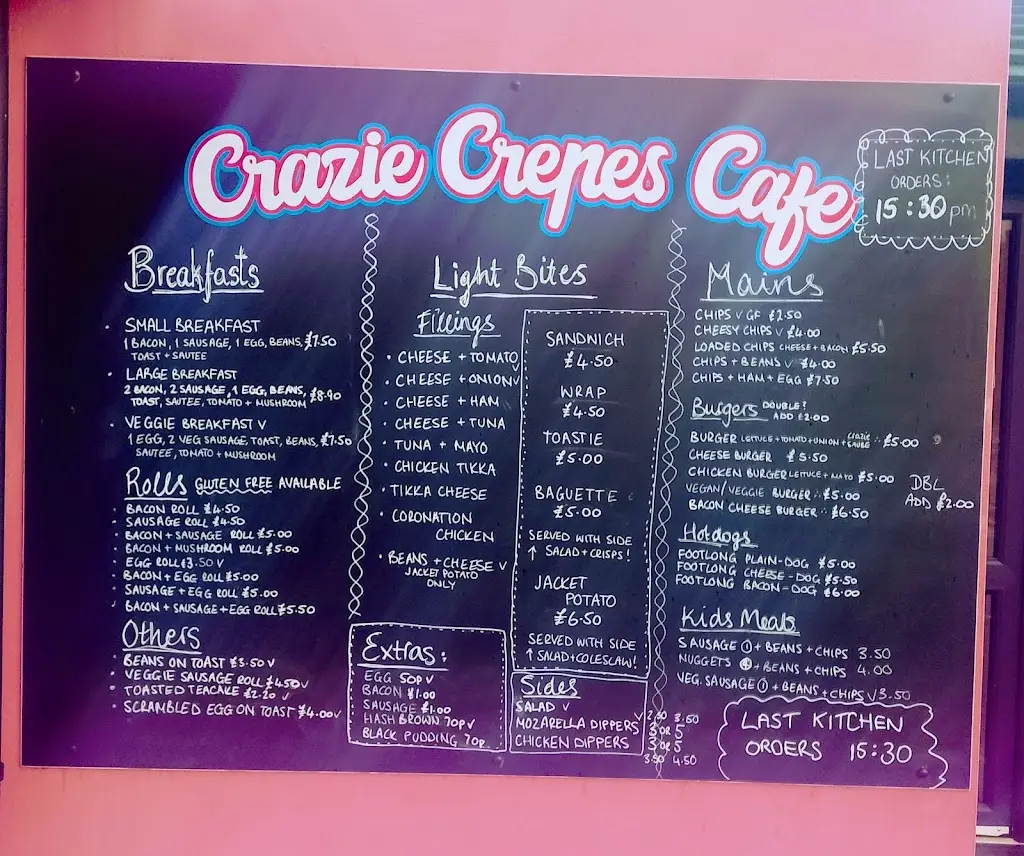 Crazie Crepes Cafe
LAST KITCHEN
ORDERS:
15:30pm
Breakfasts
• SMALL BREAKFAST
1 BACON, 1 SAUSAGE, 1 EGG, BEANS, £7.50
TOAST + SAUTEE
• LARGE BREAKFAST
2 BACON, 2 SAUSAGE, 1 EGG, BEANS, £8.90
TOAST, SAUTEE, TOMATO + MUSHROOM
• VEGGIE BREAKFAST V
1 EGG, 2 VEG SAUSAGE, TOAST, BEANS, £7.50
SAUTEE, TOMATO + MUSHROOM
Rolls GLUTEN FREE AVAILABLE
• BACON ROLL £4.50
• SAUSAGE ROLL £4.50
• BACON + SAUSAGE ROLL £5.00
• BACON + MUSHROOM ROLL £5.00
• EGG ROLL £3.50 V
• BACON + EGG ROLL £5.00
• SAUSAGE + EGG ROLL £5.00
• BACON + SAUSAGE + EGG ROLL £5.50
Others
• BEANS ON TOAST £3.50 V
• VEGGIE SAUSAGE ROLL £4.50 V
• TOASTED TEACAKE £2.20 V
• SCRAMBLED EGG ON TOAST £4.00 V
Light Bites
Fillings
• CHEESE + TOMATO V
• CHEESE + ONION V
• CHEESE + HAM
• CHEESE + TUNA
• TUNA + MAYO
• CHICKEN TIKKA
• TIKKA CHEESE
• CORONATION
CHICKEN
• BEANS + CHEESE V
JACKET POTATO
ONLY
SANDWICH
£4.50
WRAP
£4.50
TOASTIE
£5.00
BAGUETTE
£5.00
SERVED WITH SIDE
↑ SALAD + CRISPS!
JACKET
POTATO
£6.50
SERVED WITH SIDE
↑ SALAD + COLESLAW!
Extras:
EGG 50P V
BACON £1.00
SAUSAGE £1.00
HASH BROWN 70P V
BLACK PUDDING 70P
Sides
SALAD V
MOZARELLA DIPPERS V 3 OR 5
CHICKEN DIPPERS 3 OR 5
3.50 4.50
Mains
CHIPS V GF £2.50
CHEESY CHIPS V £4.00
LOADED CHIPS CHEESE + BACON £5.50
CHIPS + BEANS V £4.00
CHIPS + HAM + EGG £7.50
Burgers DOUBLE?
ADD £2.00
BURGER LETTUCE + TOMATO + ONION + CRAZIE £5.00
CHEESE BURGER £5.50
CHICKEN BURGER LETTUCE + MAYO £5.00
VEGAN/VEGGIE BURGER £5.00
BACON CHEESE BURGER £6.50
DBL
ADD £2.00
Hotdogs
FOOTLONG PLAIN-DOG £5.00
FOOTLONG CHEESE-DOG £5.50
FOOTLONG BACON-DOG £6.00
Kids Meals
SAUSAGE 1 + BEANS + CHIPS 3.50
NUGGETS 4 + BEANS + CHIPS 4.00
VEG. SAUSAGE 1 + BEANS + CHIPS V 3.50
LAST KITCHEN
ORDERS 15:30